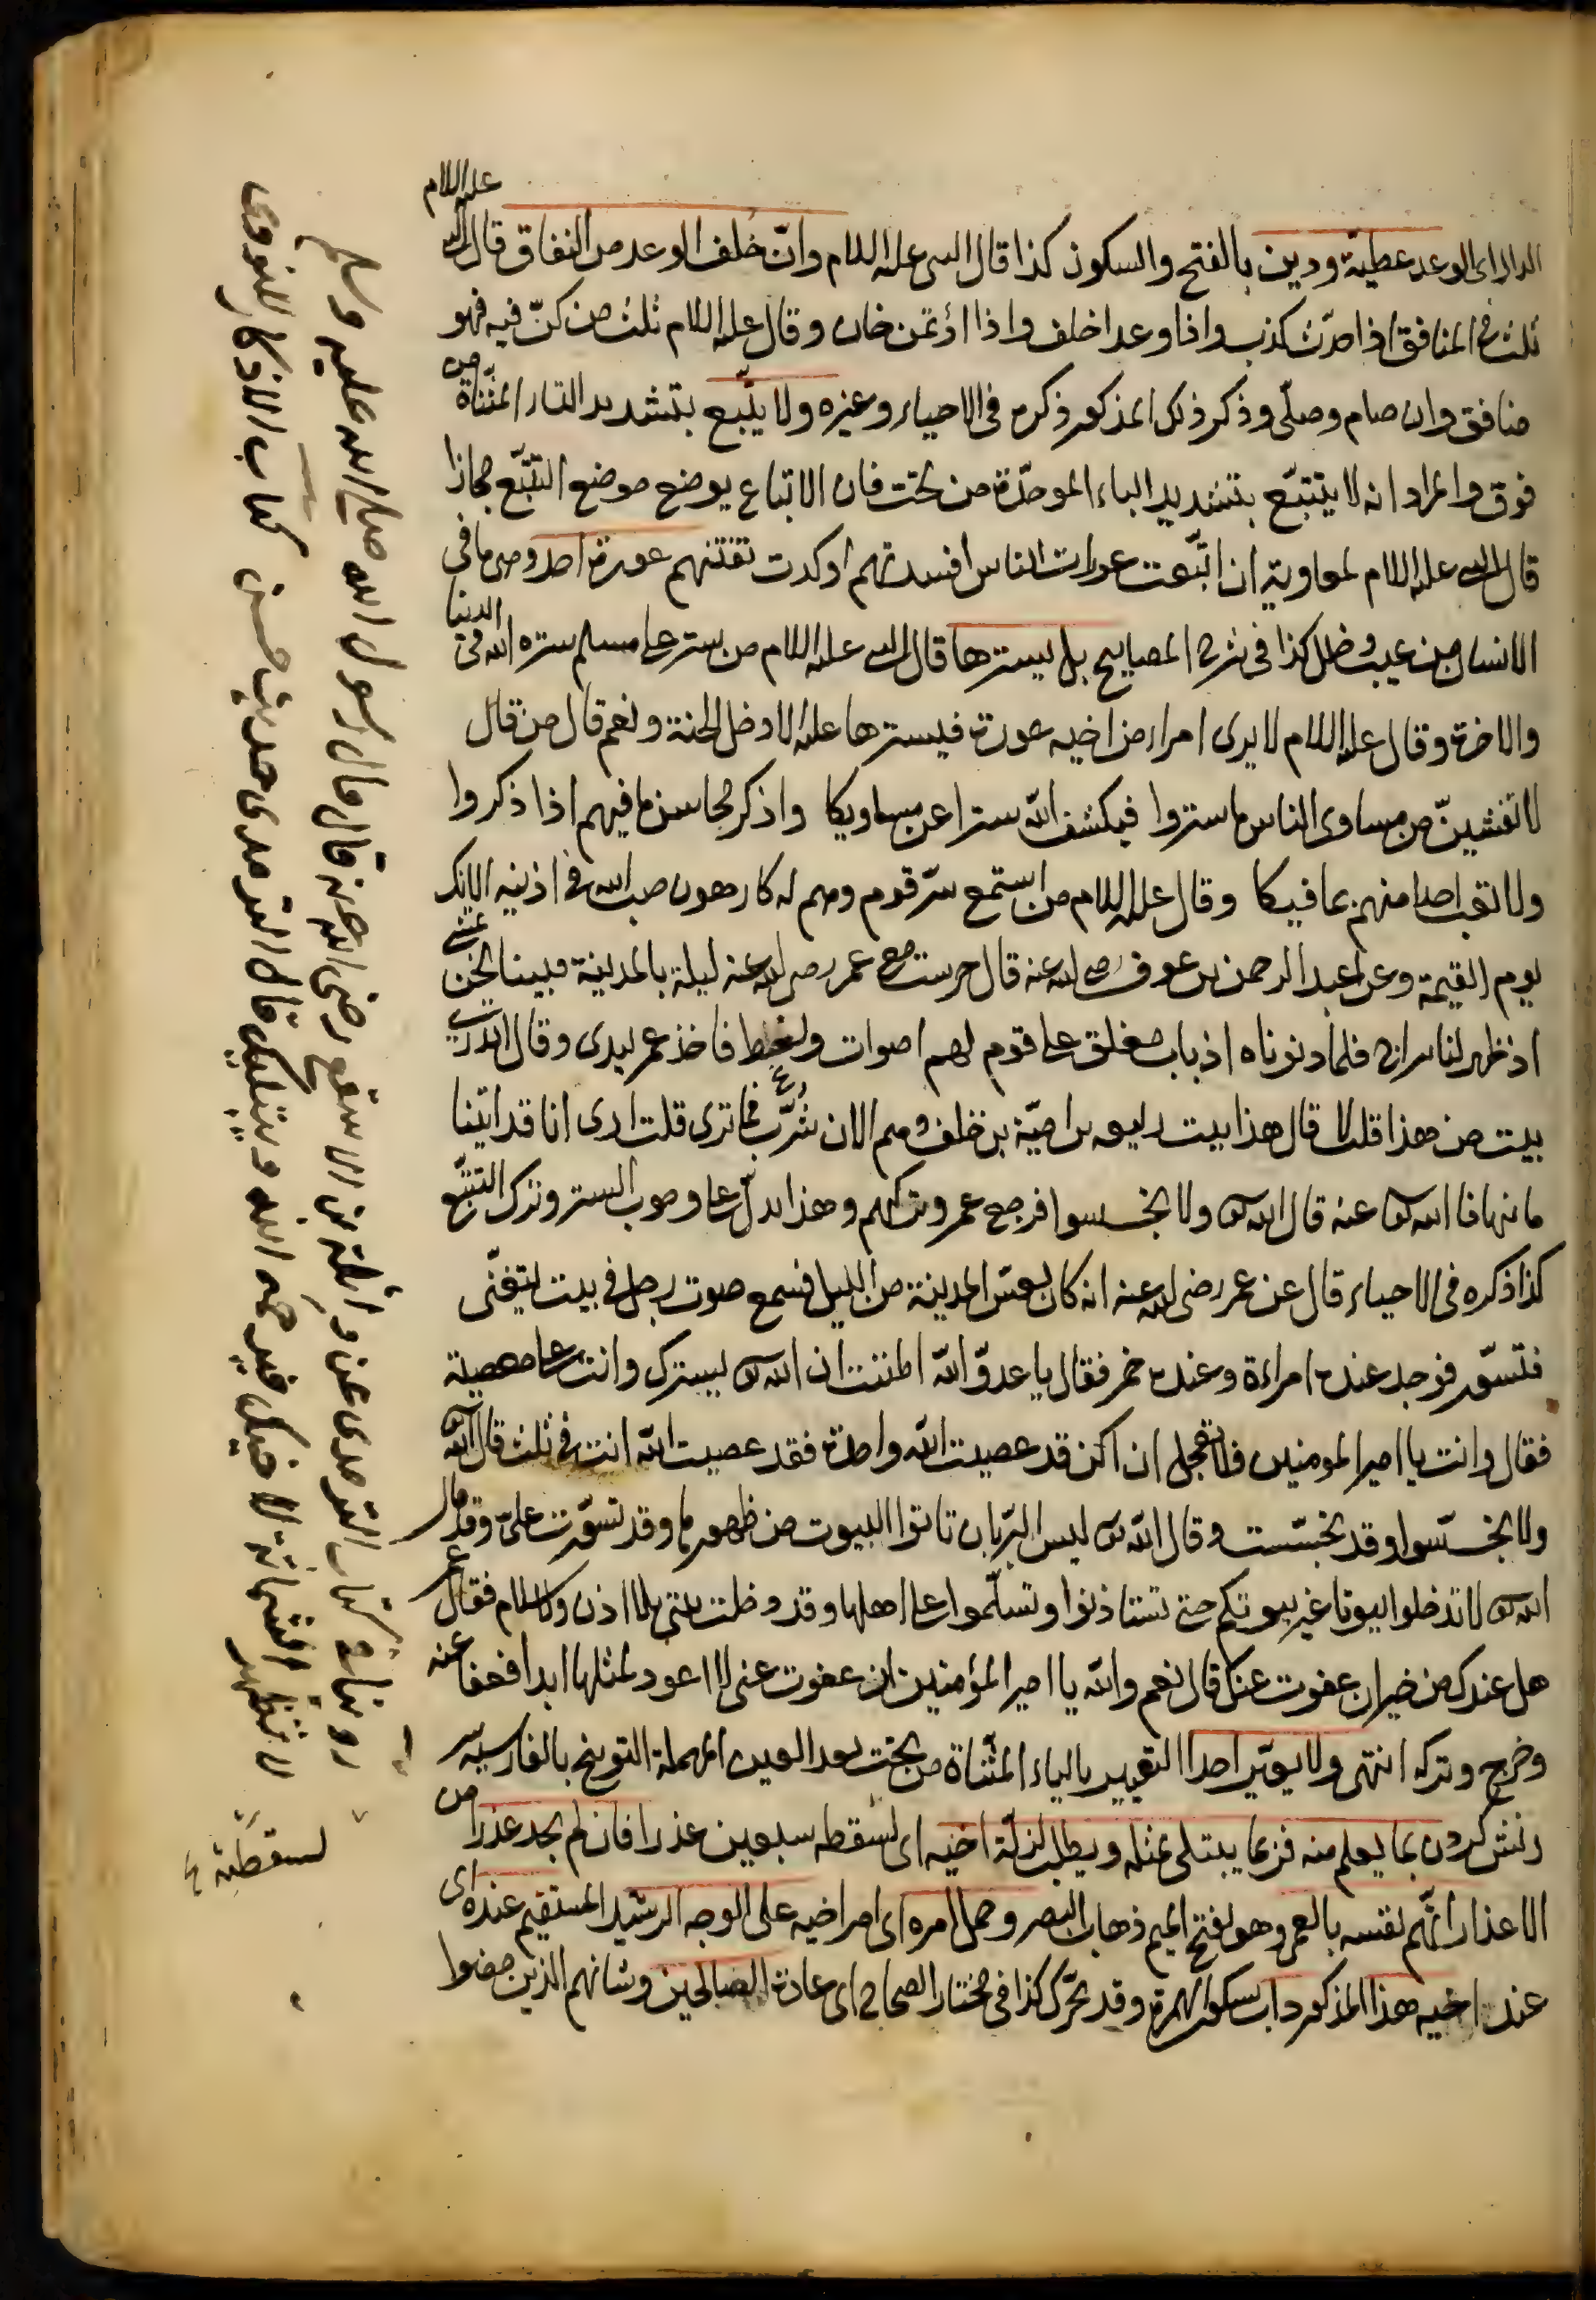 الدال اى الوعد عطية ودين بالفتح والسكون كذا قال النبى عليه السلام وانّ خلف الوعد من النفاق قال النبى عليه السلام
ثلث فى المنافق اذا حدّث كذب واذا وعد اخلف واذا اؤتمن خان وقال عليه السلام ثلث من كنّ فيه فهو
منافق وان صام وصلّى وذكر ذلك المذكور ذكره فى الاحياء وغيره ولا يتّبع بتشديد التاء المثنّاة من
فوق والمراد انه لا يتتبّع بتشديد الباء الموحّدة من تحت فان الاتباع يوضع موضع التتبّع مجازا
قال النبى عليه السلام لمعاوية ان اتّبعت عورات الناس افسدتهم او كدت تفتنهم عورة احد وهى ما فى
الانسان من عيب وخلل كذا فى شرح المصابيح بل يسترها قال النبى عليه السلام من ستر على مسلم ستره الله فى الدنيا
والاخرة وقال عليه السلام لا يرى امراء من اخيه عورة فيسترها عليه الا دخل الجنة ونعم قال من قال
لا تفشينّ من مساوى الناس ما ستروا فيكشف الله سترا عن مساويكا واذكر محاسن ما فيهم اذا ذكروا
ولا تعب احدا منهم بما فيكا وقال عليه السلام من استمع سرّ قوم وهم له كارهون صب الله فى اذنيه الانك
يوم القيمة وعن عبد الرحمن بن عوف رضى الله عنه قال حرست مع عمر رضى الله عنه ليلة بالمدينة فبينا نحن نمشى
اذ ظهر لنا سراج فلما دنوناه اذ باب مغلق على قوم لهم اصوات ولغط فاخذ عمر بيدى وقال اتدرى
بيت من هذا قلت لا قال هذا بيت ربيعه بن اميّة بن خلف وهم الان شرّب فما ترى قلت ارى انا قد اتينا
ما نهانا الله تعالى عنه قال الله تعالى ولا تجسسوا فرجع عمر وتركهم وهذا يدلّ على وجوب الستر وترك التتبّع
كذا ذكره فى الاحياء قال عن عمر رضى الله عنه انه كان يعسّ المدينة من الليل فسمع صوت رجل فى بيت يتغنّى
فتسوّر فوجد عنده امراءة وعنده خمر فقال يا عدوّ الله اظننت ان الله تعالى يسترك وانت على معصية
فقال وانت يا امير المومنين فلا تعجل ان اكن قد عصيت الله واحدة فقد عصيت الله انت فى ثلث قال الله تعالى
ولا تجسّسوا وقد تجسّست وقال الله تعالى ليس البرّ بان تاتوا البيوت من ظهورها وقد تسوّرت علىّ وقد قال
الله تعالى لا تدخلوا بيوتا غير بيوتكم حتى تستاذنوا وتسلّموا على اهلها وقد دخلت بيتى بلا اذن ولا سلام فقال عمر
هل عندك من خير ان عفوت عنك قال نعم والله يا امير المؤمنين ان عفوت عنى لا اعود لمثلها ابدا فعفا عنه
وخرج وتركه انتهى ولا يعيّر احدا التعيير بالياء المثنّاة من تحت بعد العين المهملة التوبيخ بالفارسيه سر
زنش كردن بما يعلم منه فربما يبتلى بمثله ويطلب لزلّة اخيه اى لسقطه سبعين عذرا فان لم يجد عذرا من
الاعذار اتّهم نفسه بالعمى وهو بفتح الميم ذهاب البصر وحمل امره اى امر اخيه على الوجه الرشيد المستقيم عنده اى
عند اخيه هذا المذكور داب بسكون الهمزة وقد تحرّك كذا فى مختار الصحاح اى عادة الصالحين وشانهم الذين مضوا
روينا فى كتاب الترمدى عن واثلة بن الاسقع رضى الله عنه قال قال رسول الله صلى الله عليه وسلم
لا تظهر الشماتة لاخيك فيرحمه الله ويبتليك قال الترمدى حديث حسن كتاب الاذكار للنووى
لسقطته